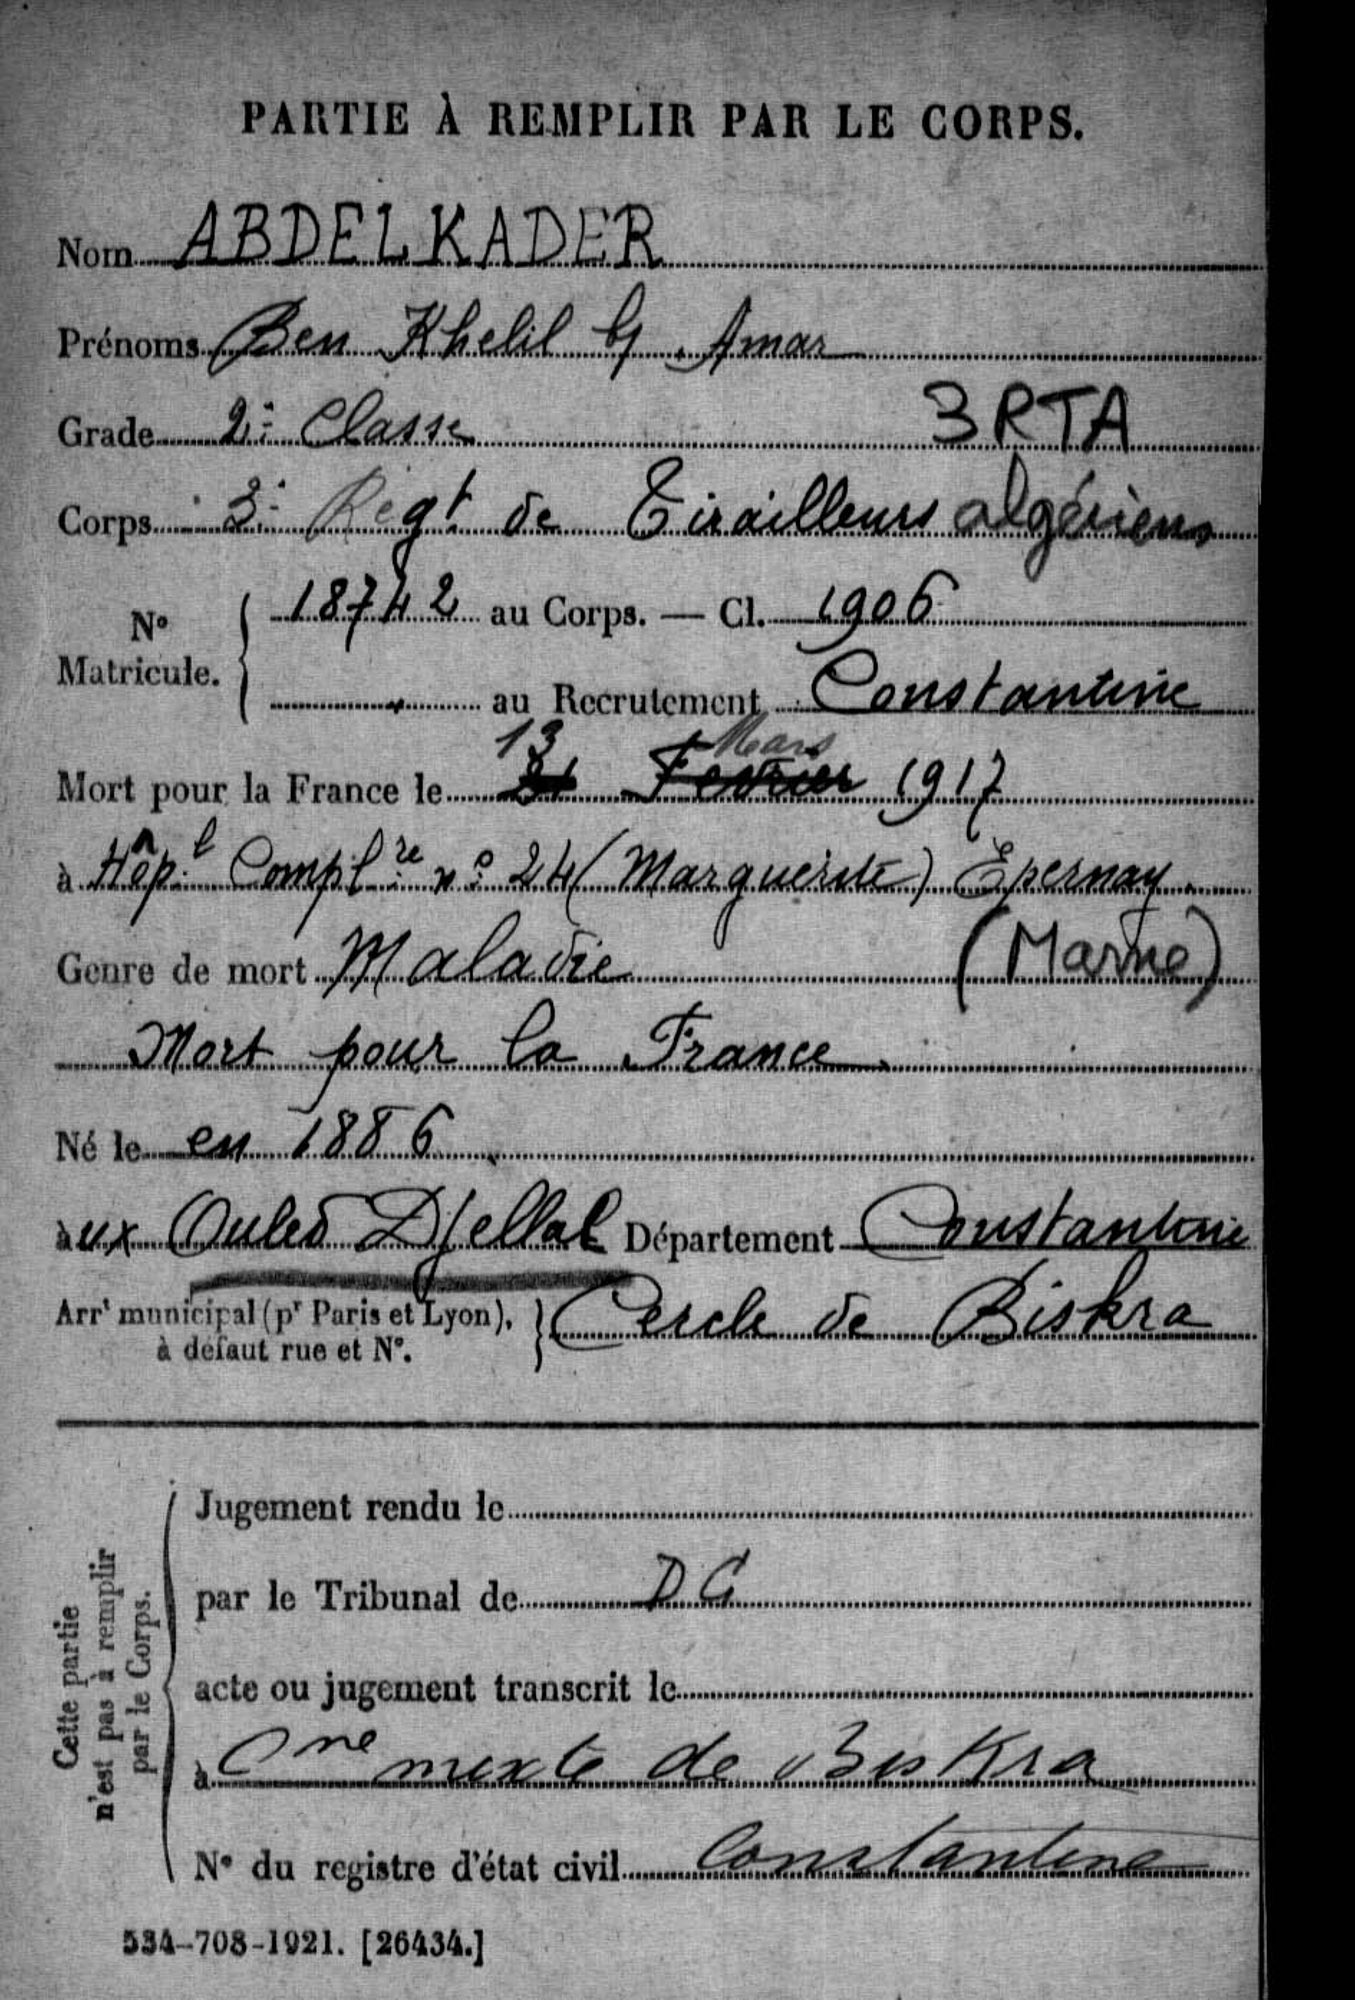 PARTIE À REMPLIR PAR LE CORPS.
Nom ABDELKADER
Prénoms Ben Khelil b/ Amar
Grade 2e Classe 3 RTA
Corps 3e Régt de Tirailleurs algériens
No Matricule. 18742 au Corps. — Cl. 1906
au Recrutement Constantine
13 Mars
Mort pour la France le 21 Fevrier 1917
à Hôpl Complre no 24 (Marguerite) Epernay
Genre de mort Maladie (Marne)
Mort pour la France
Né le en 1886
àux Ouled Djellal Département Constantine
Arrt municipal (pr Paris et Lyon), à défaut rue et No. Cercle de Biskra
Cette partie n'est pas à remplir par le Corps.
Jugement rendu le
par le Tribunal de DG
acte ou jugement transcrit le
à Cne mixte de Biskra
No du registre d'état civil Constantine
534-708-1921. [26434.]